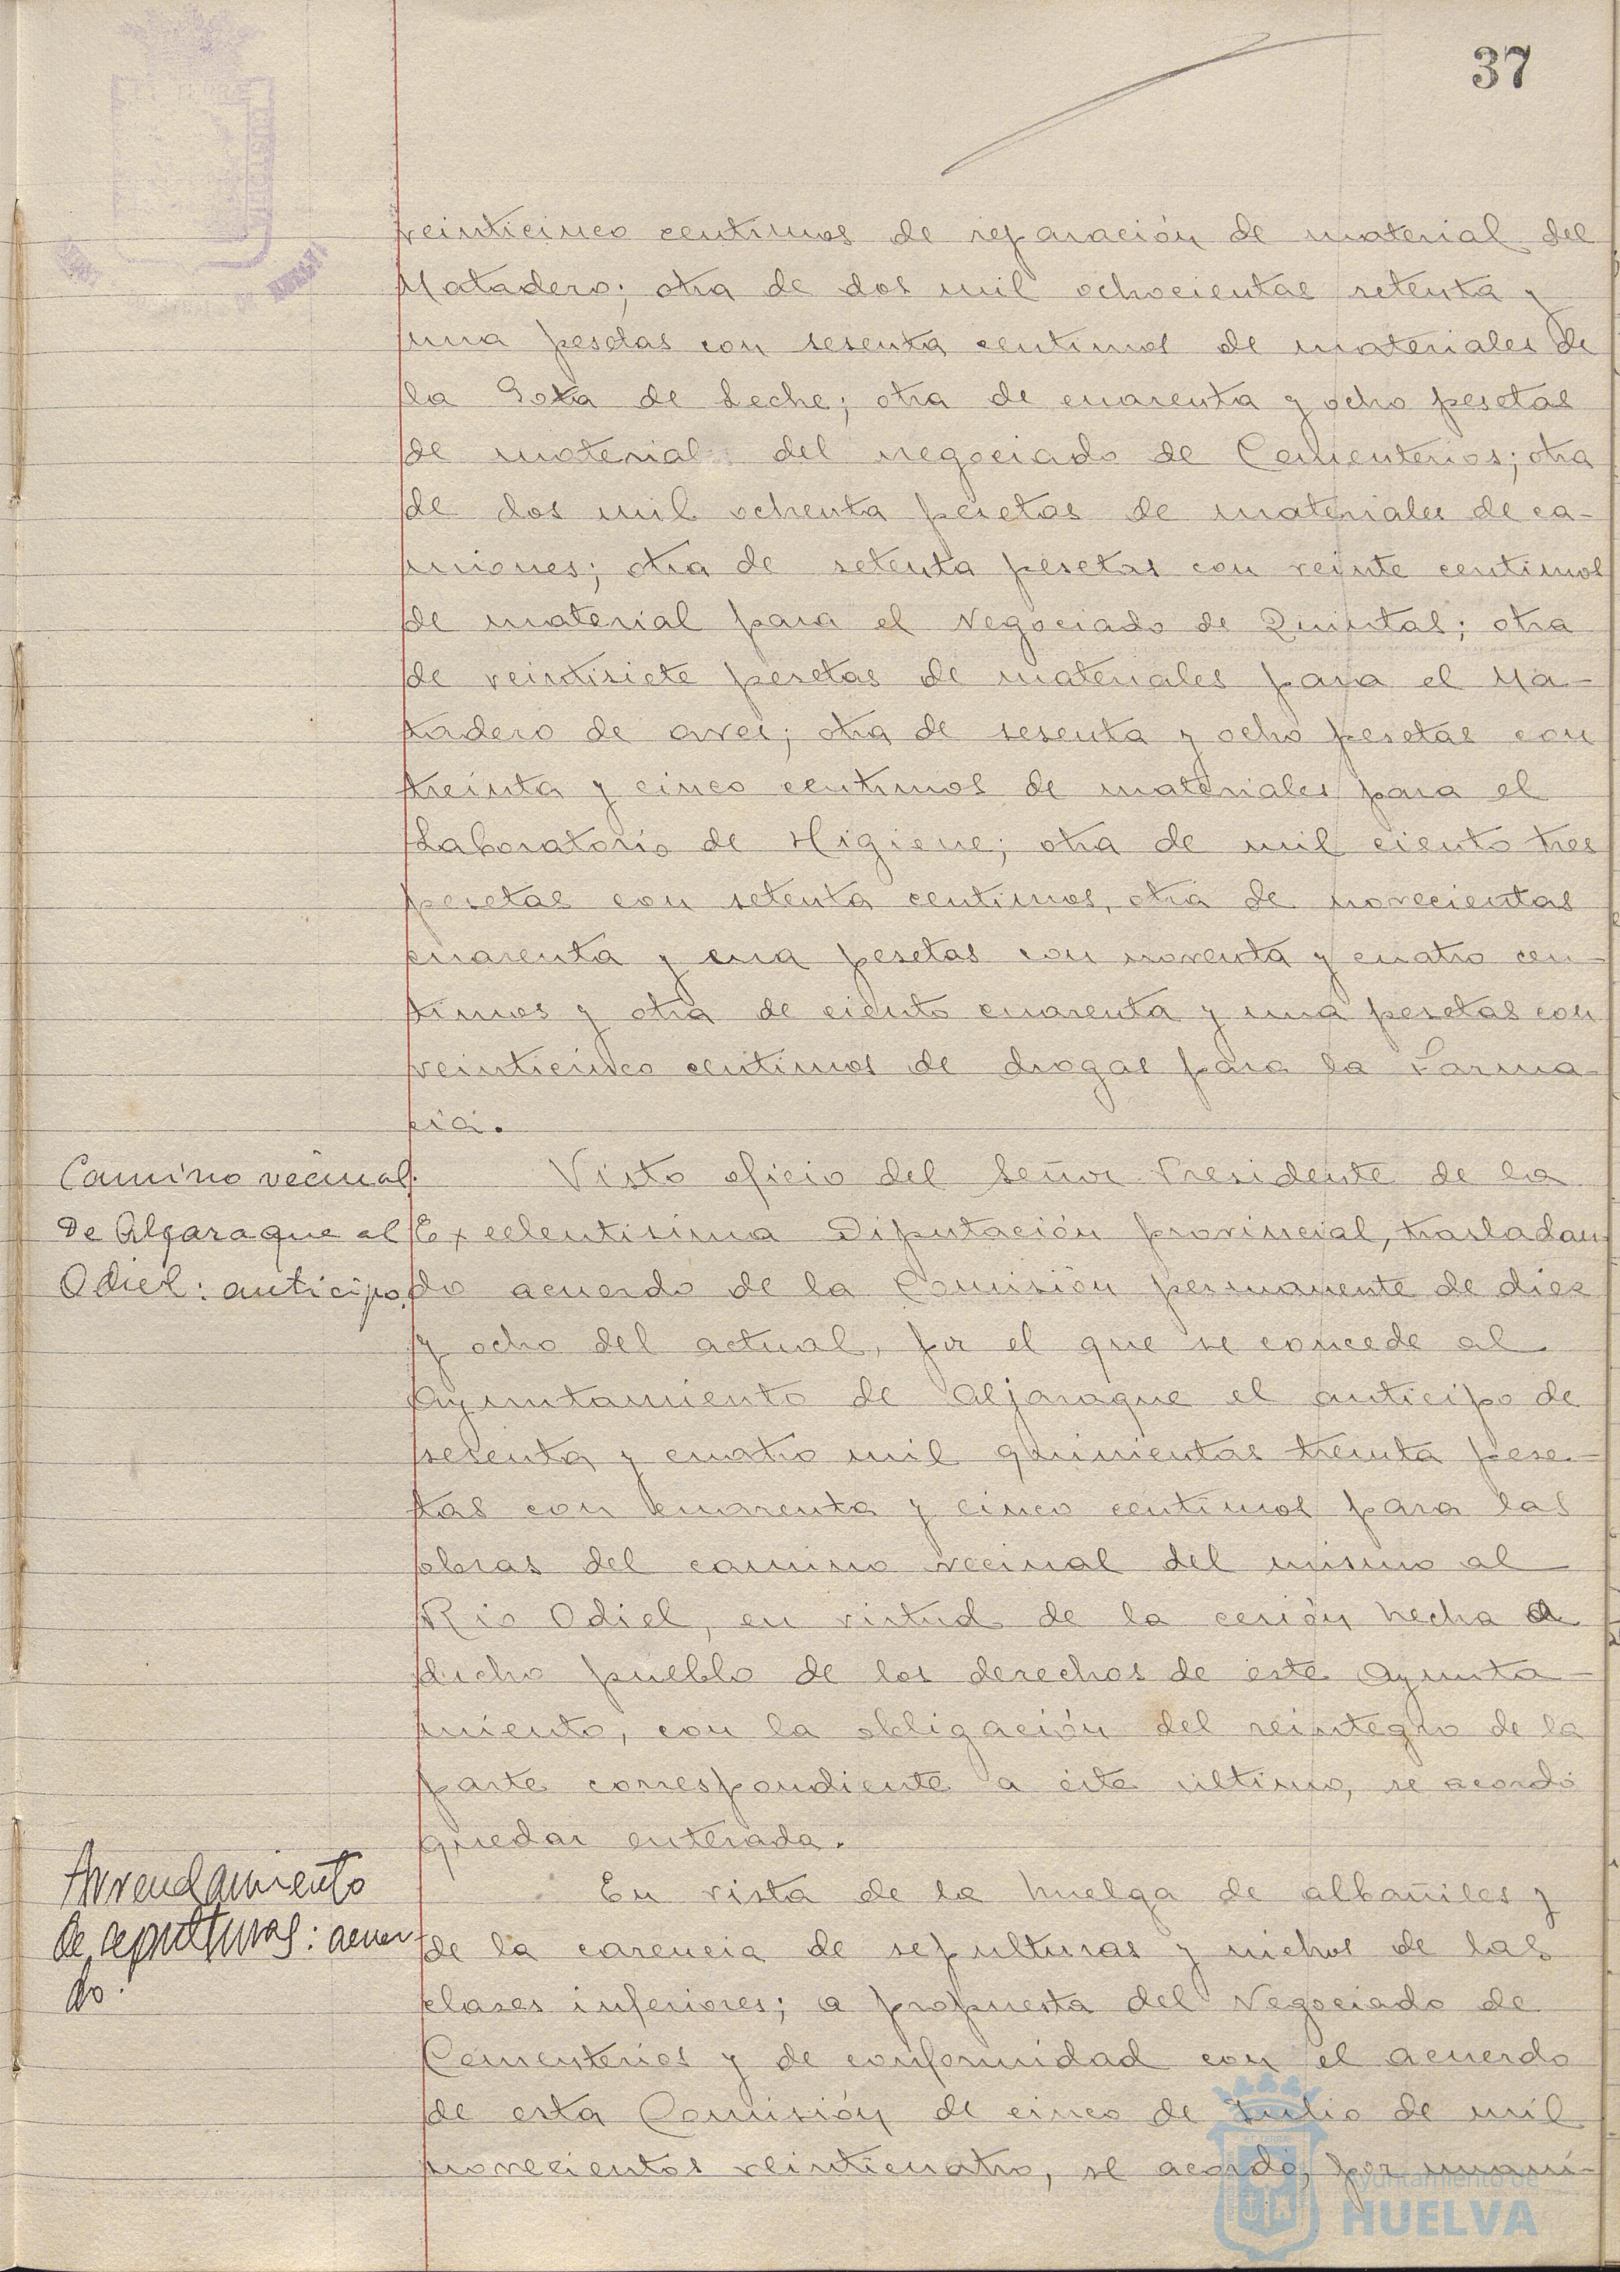 37
veinticinco centimos de reparación de material del
Matadero; otra de dos mil ochocientas setenta y
una pesetas con sesenta centimos de materiales de
la Gota de Leche; otra de cuarenta y ocho pesetas
de material del negociado de Cementerios; otra
de dos mil ochenta pesetas de materiales de ca-
miones; otra de setenta pesetas con veinte centimos
de material para el Negociado de Quintas; otra
de veintisiete pesetas de materiales para el Ma-
tadero de aves; otra de sesenta y ocho pesetas con
treinta y cinco centimos de materiales para el
Laboratorio de Higiene; otra de mil ciento tres
pesetas con setenta centimos, otra de novecientas
cuarenta y una pesetas con noventa y cuatro cen-
timos y otra de ciento cuarenta y una pesetas con
veinticinco centimos de drogas para la Farma-
cia.
Camino vecinal
De Algaraque al
Odiel: anticipo.
Visto oficio del Señor Presidente de la
Excelentisima Diputación provincial, trasladan-
do acuerdo de la Comisión permanente de diez
y ocho del actual, por el que se concede al
Ayuntamiento de Aljaraque el anticipo de
sesenta y cuatro mil quinientas treinta pese-
tas con cuarenta y cinco centimos para las
obras del camino vecinal del mismo al
Rio Odiel, en virtud de la cesión hecha a
dicho pueblo de los derechos de este Ayunta-
miento, con la obligación del reintegro de la
parte correspondiente a éste último, se acordó
quedar enterada.
Arrendamiento
de sepulturas: acuer-
do.
En vista de la huelga de albañiles y
de la carencia de sepulturas y nichos de las
clases inferiores; a propuesta del Negociado de
Cementerios y de conformidad con el acuerdo
de esta Comisión de cinco de Julio de mil
novecientos veinticuatro, se acordó, por unani-
Ayuntamiento de
HUELVA